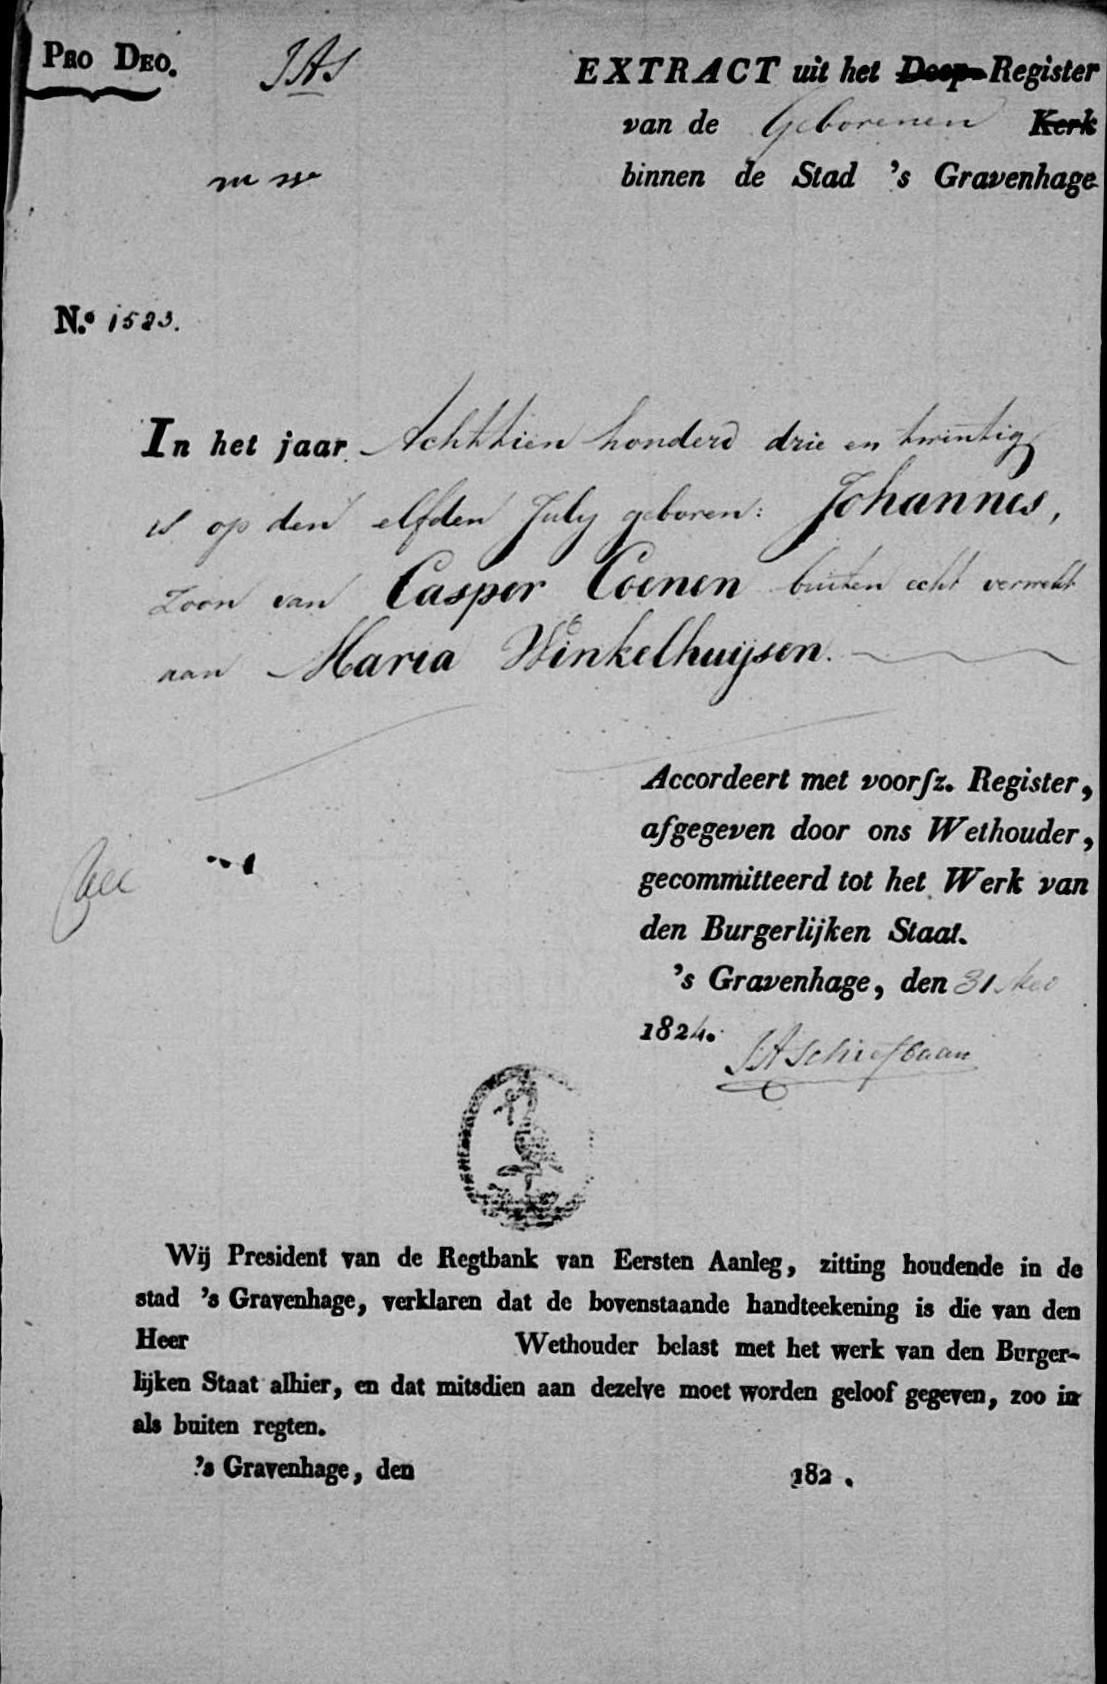 PRO DEO.
JAS
EXTRACT uit het Doop-Register
van de Geborenen Kerk
binnen de Stad 's Gravenhage
N.o 1523.
In het jaar Achttien honderd drie en twintig
is op den elfden July geboren: Johannes,
zoon van Casper Coenen buiten echt verwekt
aan Maria Winkelhuijsen.
Accordeert met voorſz. Register,
afgegeven door ons Wethouder,
gecommitteerd tot het Werk van
den Burgerlijken Staat.
's Gravenhage, den 31 Mei
1824.
JASchiefbaan
Wij President van de Regtbank van Eersten Aanleg, zitting houdende in de
stad 's Gravenhage, verklaren dat de bovenstaande handteekening is die van den
Heer Wethouder belast met het werk van den Burger-
lijken Staat alhier, en dat mitsdien aan dezelve moet worden geloof gegeven, zoo in
als buiten regten.
's Gravenhage, den 182 .